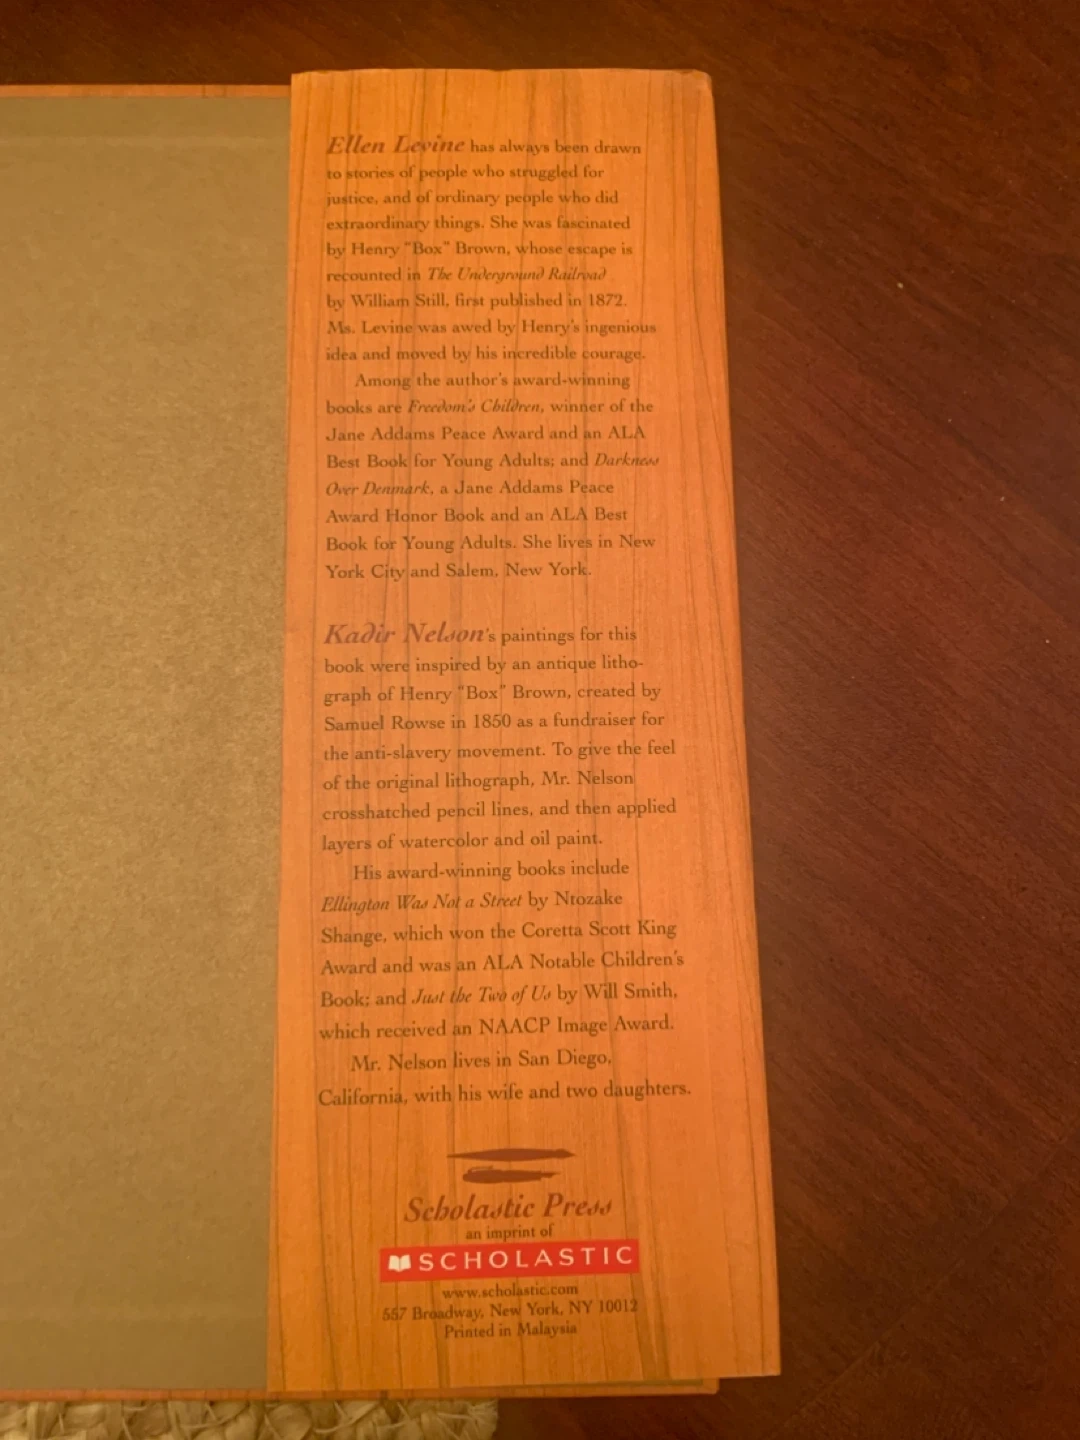 Ellen Levine has always been drawn
to stories of people who struggled for
justice, and of ordinary people who did
extraordinary things. She was fascinated
by Henry "Box" Brown, whose escape is
recounted in The Underground Railroad
by William Still, first published in 1872.
Ms. Levine was awed by Henry's ingenious
idea and moved by his incredible courage.
Among the author's award-winning
books are Freedom's Children, winner of the
Jane Addams Peace Award and an ALA
Best Book for Young Adults; and Darkness
Over Denmark, a Jane Addams Peace
Award Honor Book and an ALA Best
Book for Young Adults. She lives in New
York City and Salem, New York.
Kadir Nelson's paintings for this
book were inspired by an antique litho-
graph of Henry "Box" Brown, created by
Samuel Rowse in 1850 as a fundraiser for
the anti-slavery movement. To give the feel
of the original lithograph, Mr. Nelson
crosshatched pencil lines, and then applied
layers of watercolor and oil paint.
His award-winning books include
Ellington Was Not a Street by Ntozake
Shange, which won the Coretta Scott King
Award and was an ALA Notable Children's
Book; and Just the Two of Us by Will Smith,
which received an NAACP Image Award.
Mr. Nelson lives in San Diego,
California, with his wife and two daughters.
Scholastic Press
an imprint of
SCHOLASTIC
www.scholastic.com
557 Broadway, New York, NY 10012
Printed in Malaysia